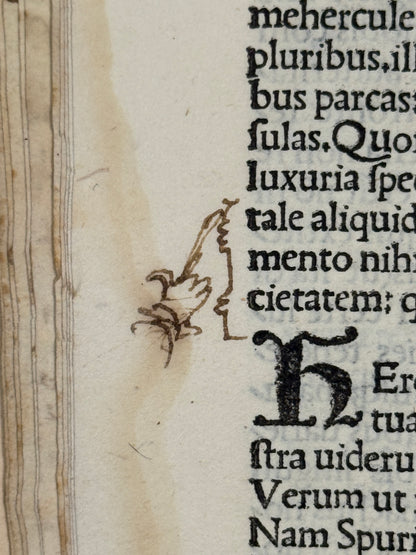 mehercule
pluribus.ill
bus parcast
ſulas.Quo
luxuria ſpe
tale aliquid
mento nihi
cietatem: q
H Ere
tua
ſtra uideru
Verum ut
Nam Spuri